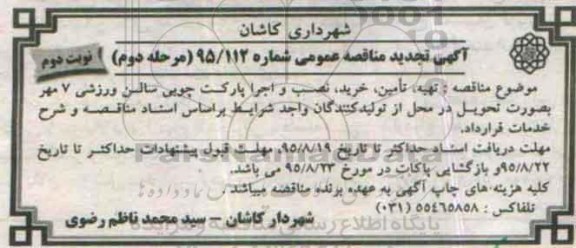 شهرداری کاشان
آگهی تجدید مناقصه عمومی شماره ۹۵/۱۱۲ (مرحله دوم)
نوبت دوم
موضوع مناقصه : تهیه، تأمین، خرید، نصب و اجرا پارکت چوبی سالن ورزشی ۷ مهر
بصورت تحویل در محل از تولیدکنندگان واجد شرایط براساس اسناد مناقصه و شرح
خدمات قرارداد.
مهلت دریافت اسناد حداکثر تا تاریخ ۹۵/۸/۱۹، مهلت قبول پیشنهادات حداکثر تا تاریخ
۹۵/۸/۲۲ و بازگشایی پاکات در مورخ ۹۵/۸/۲۳ می باشد.
کلیه هزینه های چاپ آگهی به عهده برنده مناقصه میباشد
تلفاکس : ۵۵۴۶۵۸۵۸ (۰۳۱)
شهردار کاشان – سید محمد ناظم رضوی
ParsNamadData
پایگاه اطلاع رسانی مناقصه و مزایده